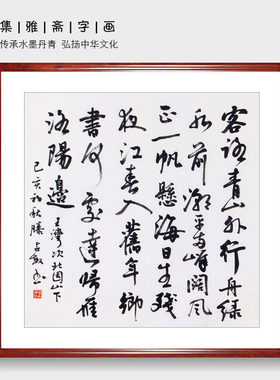 集|雅|斋|字|画
传承水墨丹青 弘扬中华文化
客路青山外行舟绿
水前潮平两岸阔风
正一帆懸海日生残
夜江春入舊年鄉
書何處達歸雁
洛陽邊 王灣次北固山下
己亥初秋滕占敏书